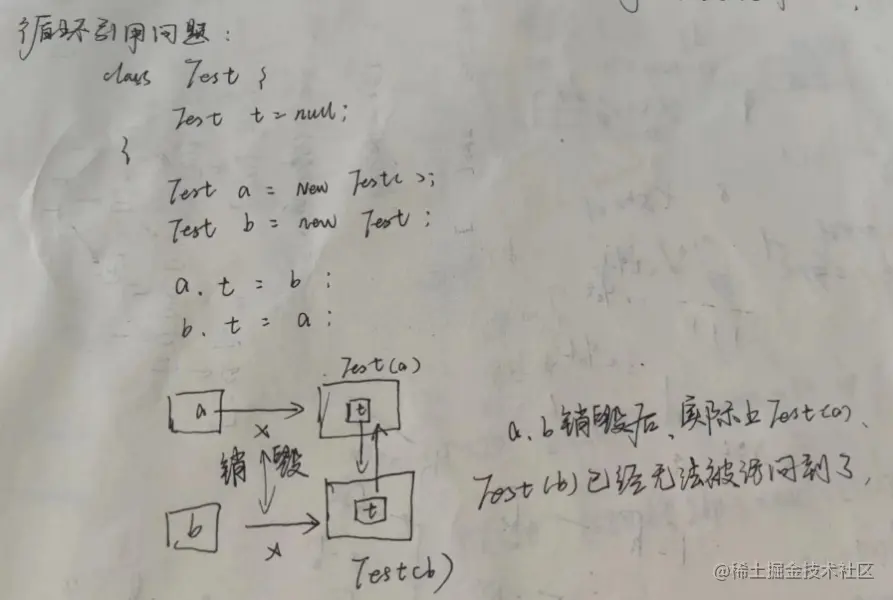 循环引用问题:
class Test {
Test t = null;
}
Test a = new Test();
Test b = new Test;
a.t = b;
b.t = a;
Test(a)
a
t
销毁
b
t
Test(b)
a、b销毁后、实际上Test(a)、
Test(b)已经无法被访问到了,
@稀土掘金技术社区